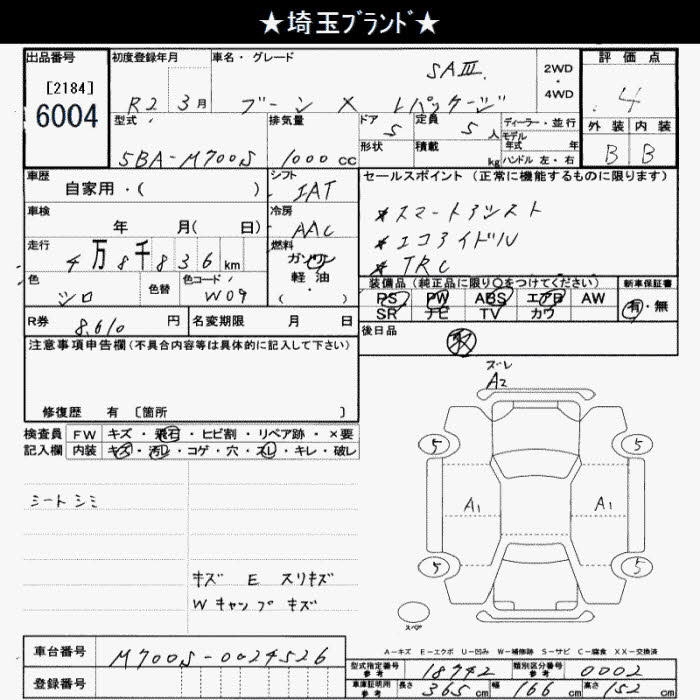 ★埼玉ﾌﾞﾗﾝﾄﾞ★
出品番号
[2184]
6004
初度登録年月
R2 3月
車名・グレード
SAⅢ.
ブーン X Lパッケージ
2WD
・
4WD
評価点
4
外装 内装
B B
型式
5BA-M700S
排気量
1000 cc
ドア
5
定員
5 人
ディーラー・並行
モデル
年式 年
形状
積載 kg
ハンドル 左・右
車歴
自家用・( )
シフト
IAT
車検
年 月( 日)
冷房
AAC
走行
4万8千836km
燃料
ガソリン
軽油
( ・ )
色
シロ
色替
色コード
W09
セールスポイント(正常に機能するものに限ります)
*スマートアシスト
*エコアイドル
*TRC
装備品(純正品に限り○をつけてください)
PS PW ABS エアB AW
SR ナビ TV カワ
新車保証書
有・無
R券
8,610 円
名変期限 月 日
後日品
注意事項申告欄(不具合内容等は具体的に記入して下さい)
修復歴 有 〔箇所 〕
検査員
記入欄
FW キズ・飛石・ヒビ割・リペア跡・×要
内装 キズ・汚レ・コゲ・穴・スレ・キレ・破レ
シートシミ
キズ E スリキズ
W キャンプ キズ
ズレ
A2
5 5
A1 A1
5 5
スペア
A－キズ E－エクボ U－凹み W－補修跡 S－サビ C－腐食 XX－交換済
車台番号
M700S-0024526
登録番号
型式指定番号
参考
18742
類別区分番号
参考
0002
車庫証明用
参考
長さ 365 cm 幅 166 cm 高さ 152 cm